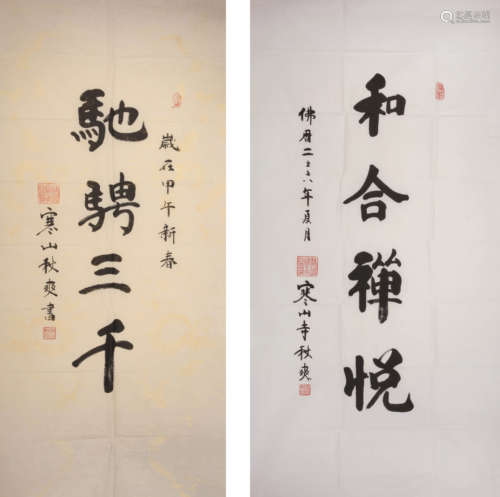 馳騁三千
歲在甲午新春
寒山秋爽書
和合禪悅
佛曆二五六年夏月
寒山寺秋爽